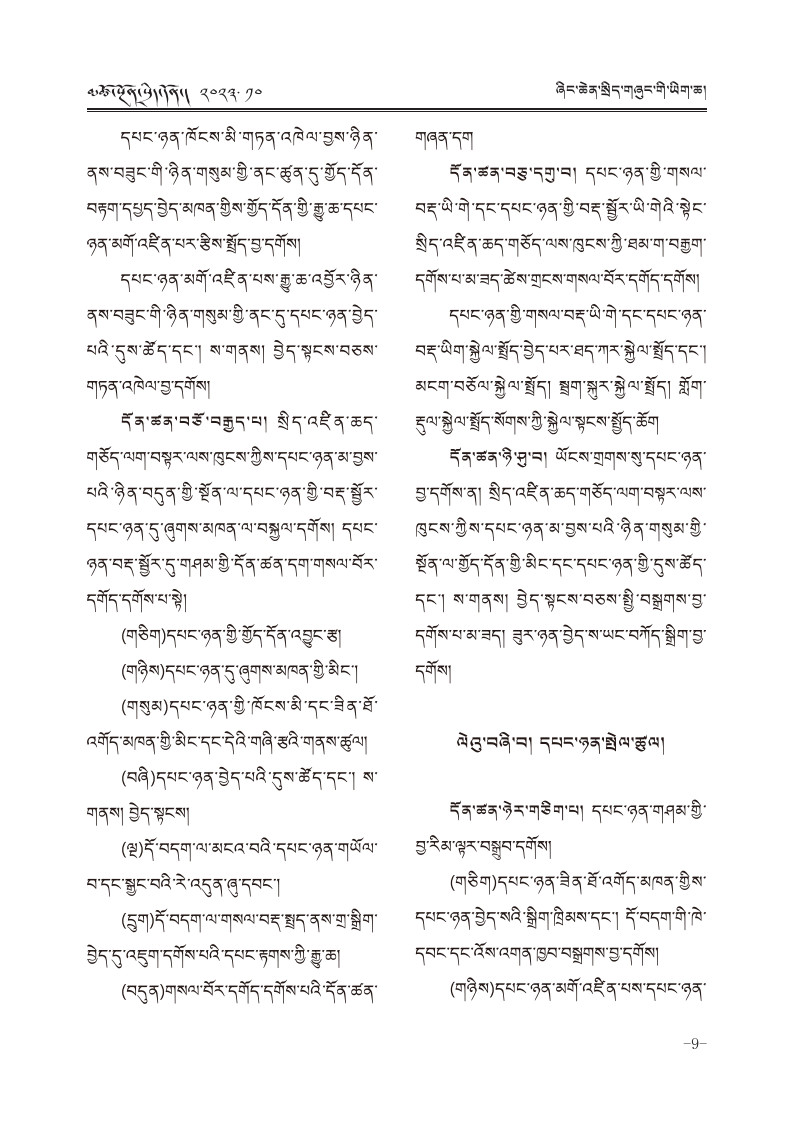 ༢༠༢༣.༡༠
ཞིང་ཆེན་སྲིད་གཞུང་གི་ཡིག་ཆ།
དཔང་ཉན་ཁོངས་མི་གཏན་འཁེལ་བྱས་ཉིན་
ནས་བཟུང་གི་ཉིན་གསུམ་གྱི་ནང་ཚུན་དུ་གྱོད་དོན་
བརྟག་དཔྱད་བྱེད་མཁན་གྱིས་གྱོད་དོན་གྱི་རྒྱུ་ཆ་དཔང་
ཉན་མགོ་འཛིན་པར་རྩིས་སྤྲོད་བྱ་དགོས།
དཔང་ཉན་མགོ་འཛིན་པས་རྒྱུ་ཆ་འབྱོར་ཉིན་
ནས་བཟུང་གི་ཉིན་གསུམ་གྱི་ནང་དུ་དཔང་ཉན་བྱེད་
པའི་དུས་ཚོད་དང་། ས་གནས། བྱེད་སྟངས་བཅས་
གཏན་འཁེལ་བྱ་དགོས།
དོན་ཚན་བཅོ་བརྒྱད་པ། སྲིད་འཛིན་ཆད་
གཅོད་ལག་བསྟར་ལས་ཁུངས་ཀྱིས་དཔང་ཉན་མ་བྱས་
པའི་ཉིན་བདུན་གྱི་སྔོན་ལ་དཔང་ཉན་གྱི་བརྡ་སྦྱོར་
དཔང་ཉན་དུ་ཞུགས་མཁན་ལ་བསྐྱལ་དགོས། དཔང་
ཉན་བརྡ་སྦྱོར་དུ་གཤམ་གྱི་དོན་ཚན་དག་གསལ་བོར་
དགོད་དགོས་པ་སྟེ།
(གཅིག)དཔང་ཉན་གྱི་གྱོད་དོན་འབྱུང་རྩ།
(གཉིས)དཔང་ཉན་དུ་ཞུགས་མཁན་གྱི་མིང་།
(གསུམ)དཔང་ཉན་གྱི་ཁོངས་མི་དང་ཟིན་ཐོ་
འགོད་མཁན་གྱི་མིང་དང་དེའི་གཞི་རྩའི་གནས་ཚུལ།
(བཞི)དཔང་ཉན་བྱེད་པའི་དུས་ཚོད་དང་། ས་
གནས། བྱེད་སྟངས།
(ལྔ)དོ་བདག་ལ་མངའ་བའི་དཔང་ཉན་གཡོལ་
བ་དང་སྒྱུང་བའི་རེ་འདུན་ཞུ་དབང་།
(དྲུག)དོ་བདག་ལ་གསལ་བརྡ་སྤྲད་ནས་གྲ་སྒྲིག་
བྱེད་དུ་འཇུག་དགོས་པའི་དཔང་རྟགས་ཀྱི་རྒྱུ་ཆ།
(བདུན)གསལ་བོར་དགོད་དགོས་པའི་དོན་ཚན་
གཞན་དག
དོན་ཚན་བཅུ་དགུ་བ། དཔང་ཉན་གྱི་གསལ་
བརྡ་ཡི་གེ་དང་དཔང་ཉན་གྱི་བརྡ་སྦྱོར་ཡི་གེའི་སྟེང་
སྲིད་འཛིན་ཆད་གཅོད་ལས་ཁུངས་ཀྱི་ཐམ་ག་བརྒྱག་
དགོས་པ་མ་ཟད་ཚེས་གྲངས་གསལ་བོར་དགོད་དགོས།
དཔང་ཉན་གྱི་གསལ་བརྡ་ཡི་གེ་དང་དཔང་ཉན་
བརྡ་ཡིག་སྐྱེལ་སྤྲོད་བྱེད་པར་ཐད་ཀར་སྐྱེལ་སྤྲོད་དང་།
མངག་བཅོལ་སྐྱེལ་སྤྲོད། སྦྲག་སྐུར་སྐྱེལ་སྤྲོད། གློག་
རྡུལ་སྐྱེལ་སྤྲོད་སོགས་ཀྱི་སྐྱེལ་སྟངས་སྤྱོད་ཆོག
དོན་ཚན་ཉི་ཤུ་བ། ཡོངས་གྲགས་སུ་དཔང་ཉན་
བྱ་དགོས་ན། སྲིད་འཛིན་ཆད་གཅོད་ལག་བསྟར་ལས་
ཁུངས་ཀྱིས་དཔང་ཉན་མ་བྱས་པའི་ཉིན་གསུམ་གྱི་
སྔོན་ལ་གྱོད་དོན་གྱི་མིང་དང་དཔང་ཉན་གྱི་དུས་ཚོད་
དང་། ས་གནས། བྱེད་སྟངས་བཅས་སྤྱི་བསྒྲགས་བྱ་
དགོས་པ་མ་ཟད། ཟུར་ཉན་བྱེད་ས་ཡང་བཀོད་སྒྲིག་བྱ་
དགོས།
ལེའུ་བཞི་བ། དཔང་ཉན་སྤེལ་ཚུལ།
དོན་ཚན་ཉེར་གཅིག་པ། དཔང་ཉན་གཤམ་གྱི་
བྱ་རིམ་ལྟར་བསྒྲུབ་དགོས།
(གཅིག)དཔང་ཉན་ཟིན་ཐོ་འགོད་མཁན་གྱིས་
དཔང་ཉན་བྱེད་སའི་སྒྲིག་ཁྲིམས་དང་། དོ་བདག་གི་ཁེ་
དབང་དང་འོས་འགན་ཁྱབ་བསྒྲགས་བྱ་དགོས།
(གཉིས)དཔང་ཉན་མགོ་འཛིན་པས་དཔང་ཉན་
-9-